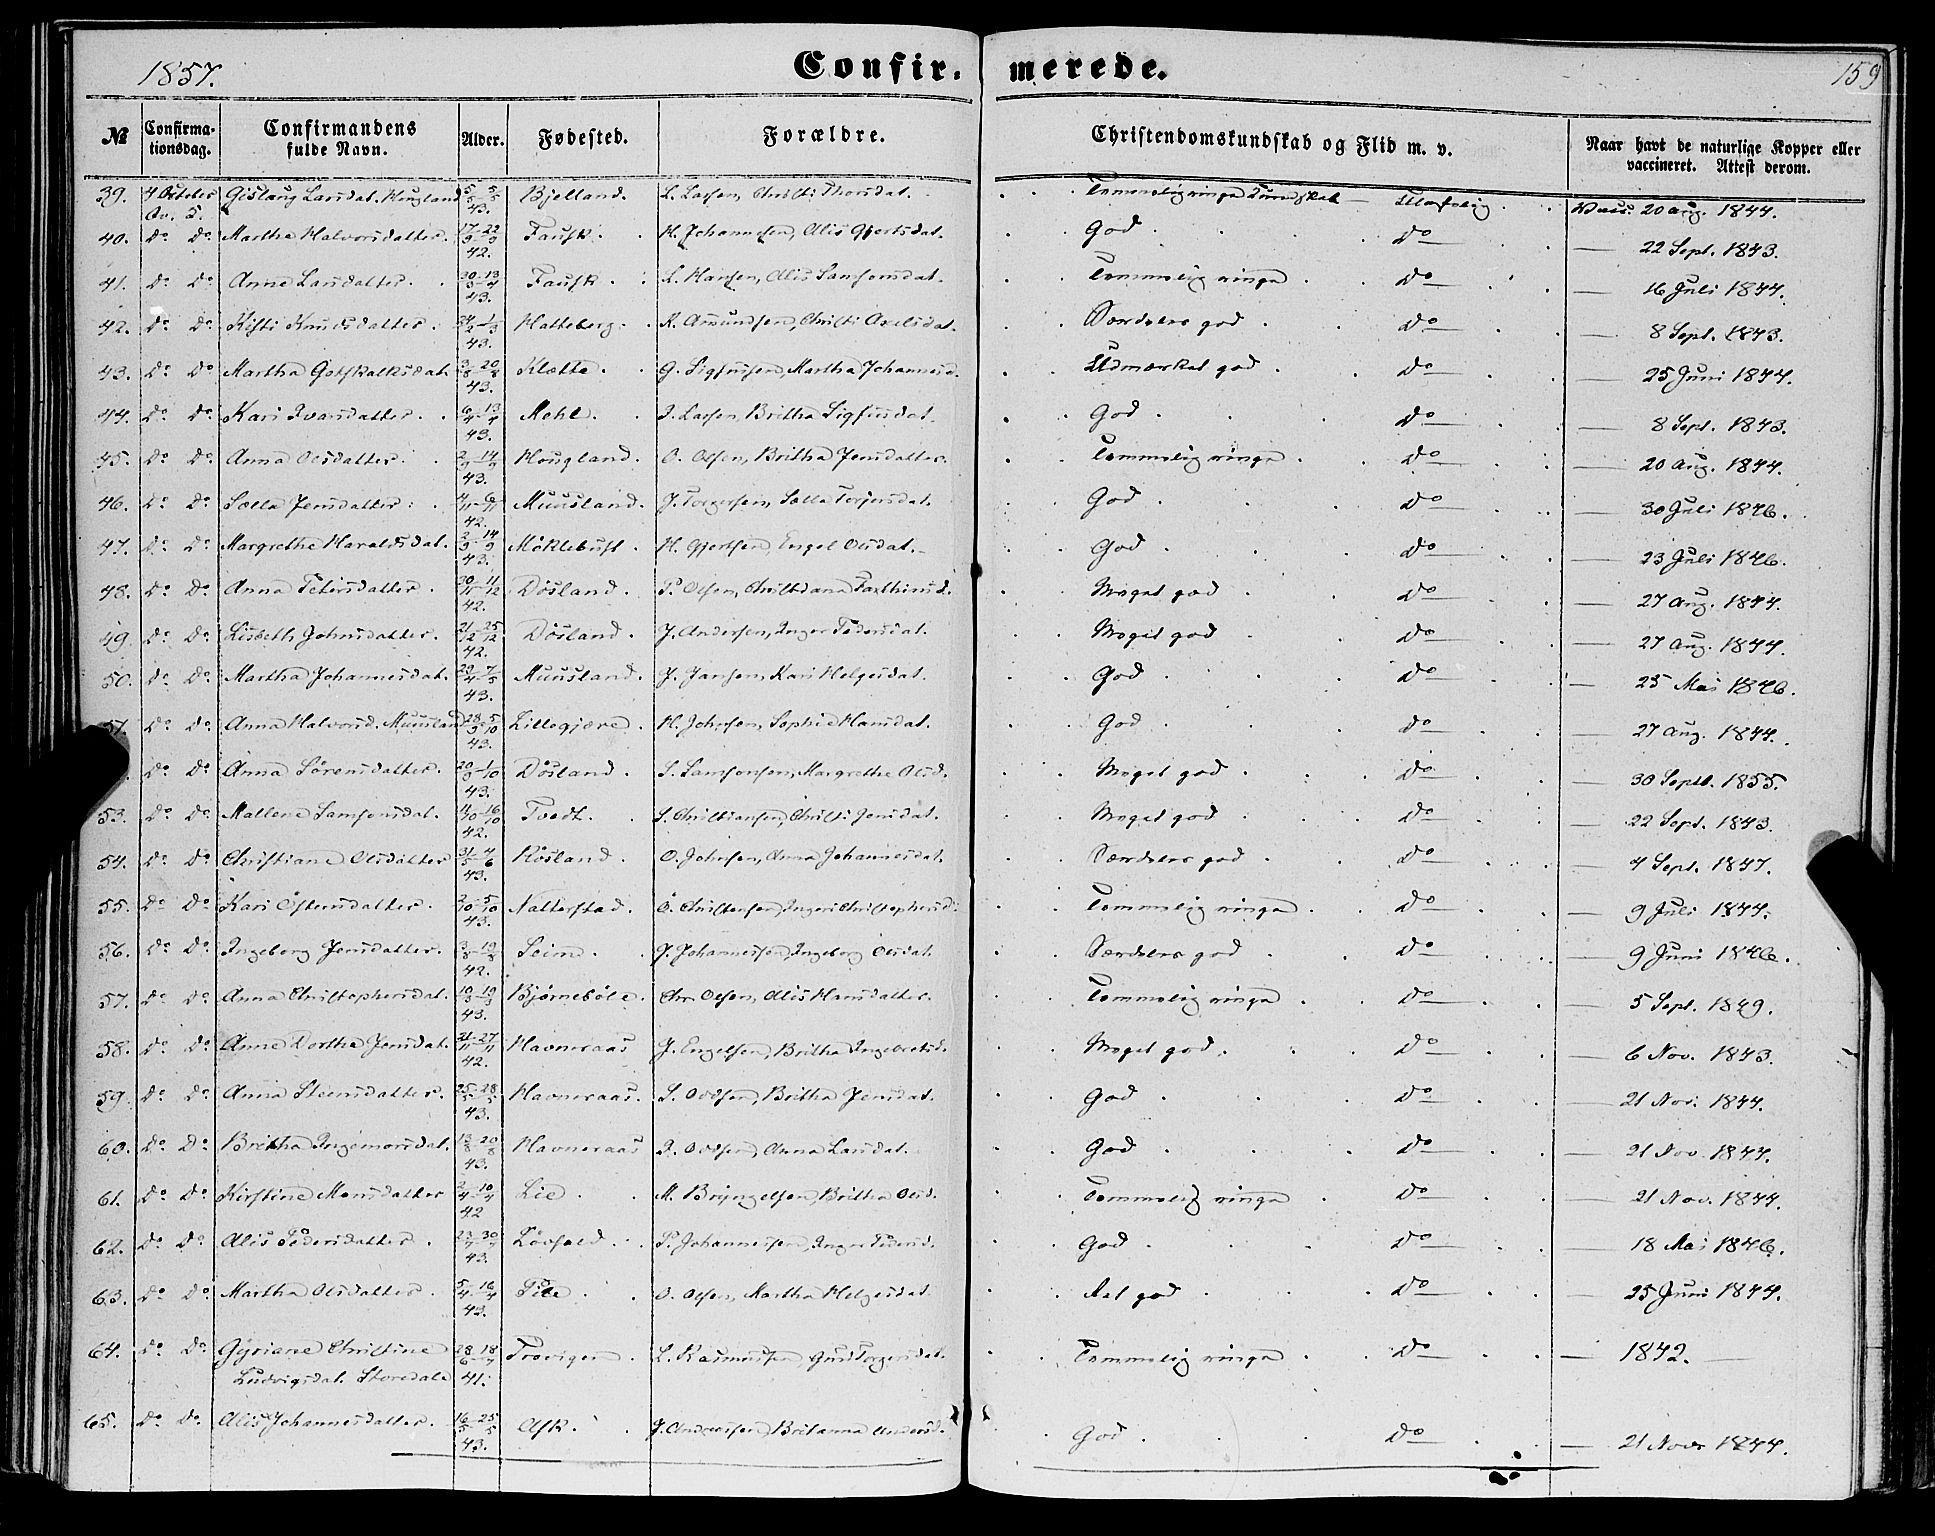 1857.
Confir- merede.
159
№ Confirma-tionsdag. Confirmandens fulde Navn. Alder. Fødested. Forældre. Christendomskundskab og Flid m. v. Naar havt de naturlige Kopper eller vaccineret. Attest derom.
39. 4 October Gislaug Larsdat. Hougland 5/5 5/5 43. Bjelland. L. Larsen, Christi Thorsdat. Temmelig ringe Kundskab — Vacc. 20 Aug. 1844.
40. Do Do Martha Halvorsdatter. 17/9 22/9 42. Fausk. H. Johannesen, Alis Gjertsdat. God Do — 22 Sept. 1843.
41. Do Do Anne Larsdatter. 30/3 13/4 43. Fausk. L. Hansen, Alis Samsonsdat. Temmelig ringe Do — 16 Juli 1844.
42. Do Do Kisti Knudsdatter. 24/2 1/3 43. Hatteberg. K. Amundsen, Christi Axelsdat. Særdeles god Do — 8 Sept. 1843.
43. Do Do Martha Gotskalksdat. 3/8 20/8 43. Klætte. G. Sigfusen, Martha Johannesd. Udmærket god Do — 25 Juni 1844.
44. Do Do Kari Ivarsdatter. 6/4 13/4 43. Mehl. I. Larsen, Britha Sigfusdat. God Do — 8 Sept. 1843.
45. Do Do Anna Olsdatter. 2/9 14/9 43. Hougland. O. Olsen, Britha Jensdatter. Temmelig ringe Do — 20 Aug. 1844.
46. Do Do Sælla Jensdatter. 4/11 6/11 42. Muusland. J. Torgersen, Sælla Torjersdat. God Do — 30 Juli 1846.
47. Do Do Margrethe Haraldsdat. 2/9 14/9 43. Møklebust. H. Gjertsen, Engel Olsdat. God Do — 23 Juli 1846.
48. Do Do Anna Petersdatter. 30/11 11/12 42. Døsland. P. Olsen, Christiana Farthinsd. Meget god Do — 27 Aug. 1844.
49. Do Do Lisbeth Johnsdatter. 21/12 25/12 42. Døsland. J. Andersen, Inger Pedersdat. Meget god Do — 27 Aug. 1844.
50. Do Do Martha Johannesdat. 29/4 7/5 43. Muusland. J. Jansen, Kari Helgesdat. God Do — 25 Mai 1846.
51. Do Do Anna Halvorsd. Muusland 28/9 5/10 43. Lillegjære. H. Johnsen, Sophie Hansdat. God Do — 27 Aug. 1844.
Do Do Anna Sørensdatter. 20/9 1/10 43. Døsland. S. Samsonsen, Margrethe Olsd. Meget god Do — 30 Septb. 1855.
53. Do Do Mallene Samsonsdat. 11/10 16/10 42. Tvedt. S. Christiansen, Christi Jensdat. Meget god Do — 22 Sept. 1843.
54. Do Do Christiane Olsdatter 31/5 4/6 43. Røsland. O. Johnsen, Anna Johannesdat. Særdeles god Do — 4 Sept. 1847.
55. Do Do Kari Østensdatter. 2/10 5/10 43. Natterstad. Ø. Christensen, Ingeri Christophersd. Temmelig ringe Do — 9 Juli 1844.
56. Do Do Ingeborg Jensdatter. 3/8 19/8 42. Seim. J. Johannessen, Ingeborg Olsdat. Særdeles god Do — 9 Juni 1846.
57. Do Do Anna Christophersdat. 10/3 19/3 43. Bjørnebøle. Chr. Olsen, Alis Hansdatter. Temmelig ringe Do — 5 Sept. 1849.
58. Do Do Anne Dorthea Jensdat. 21/11 27/11 42. Havneraas J. Engelsen, Britha Ingebretsd. Meget god Do — 6 Nov. 1843.
59. Do Do Anna Steensdatter. 25/5 28/5 43. Havneraas. S. Oddsen, Britha Jensdat. God Do — 21 Nov. 1844.
60. Do Do Britha Ingemorsdat. 13/8 20/8 43. Havneraas I. Oddsen, Anna Larsdat. God Do — 21 Nov. 1844.
61. Do Do Kirstine Monsdatter 2/4 10/4 42 Lie. M. Bryngelsen, Britha Olsd. Temmelig ringe Do — 21 Nov. 1844.
62. Do Do Alis Pedersdatter. 23/4 30/4 43. Løvfald. P. Johannessen, Inger Pedersd. God Do — 18 Mai 1846.
63. Do Do Martha Olsdatter. 5/4 16/4 43. O. Olsen, Martha Helgesdat. Ret god Do — 25 Juni 1844.
64. Do Do Gyriane Christine Ludvigsdat. Storedale 28/6 18/7 41. Trovigen. L. Rasmussen Guri Torgersdat. Temmelig ringe Do — 1842. —
65. Do Do Alis Johannesdatter. 16/5 25/5 43. Ask. J. Andreassen, Britanna Andersd. God Do — 21 Novr 1844.